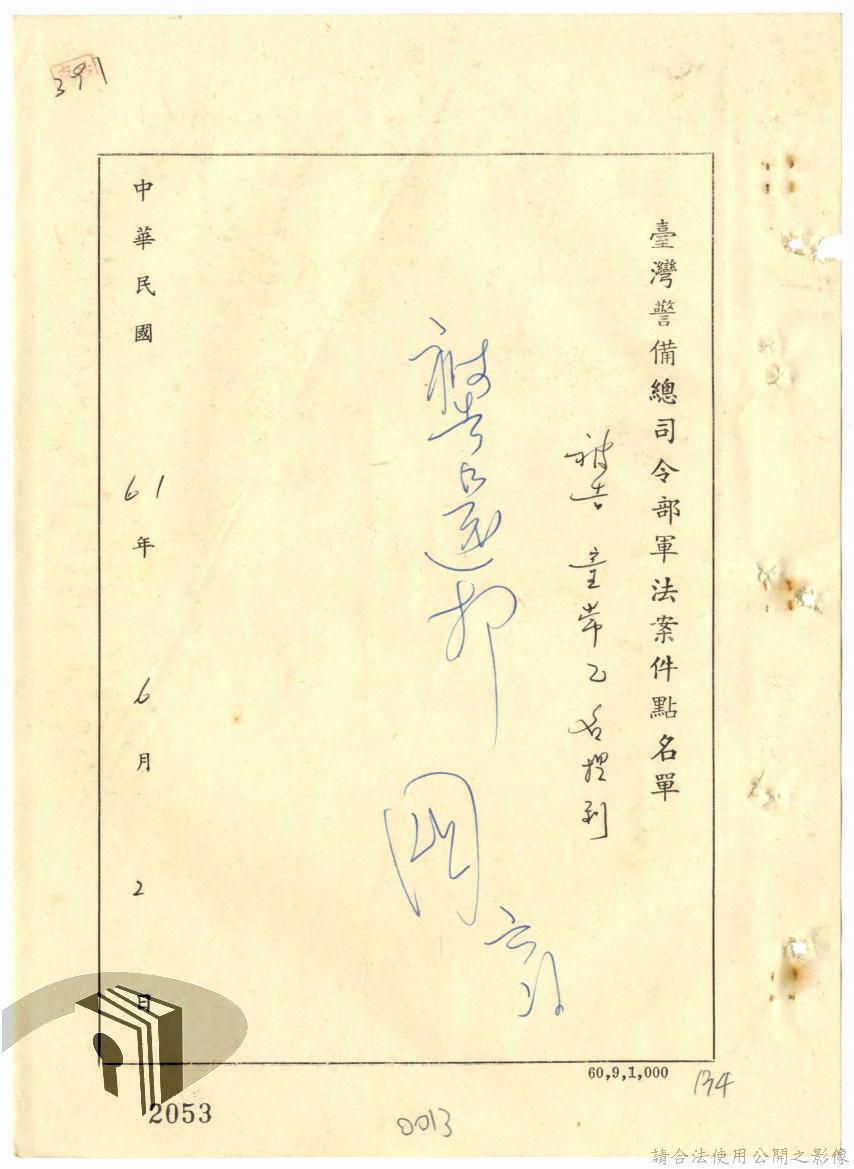 391
臺灣警備總司令部軍法案件點名單
被告 童常乙名提到
被告還押
中華民國 61年 6月 2日
60,9,1,000
134
2053
0013
請合法使用公開之影像